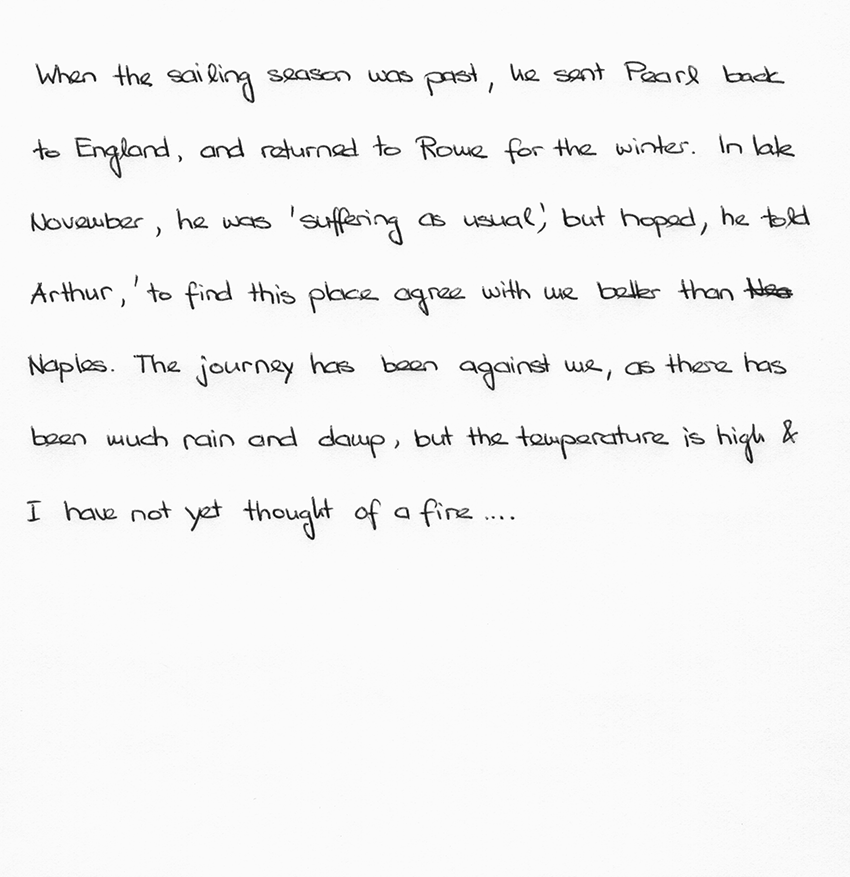 When the sailing season was past, he sent Pearl back
to England, and returned to Rome for the winter. In late
November, he was 'suffering as usual', but hoped, he told
Arthur, 'to find this place agree with me better than
Naples. The journey has been against me, as there has
been much rain and damp, but the temperature is high &
I have not yet thought of a fire ....